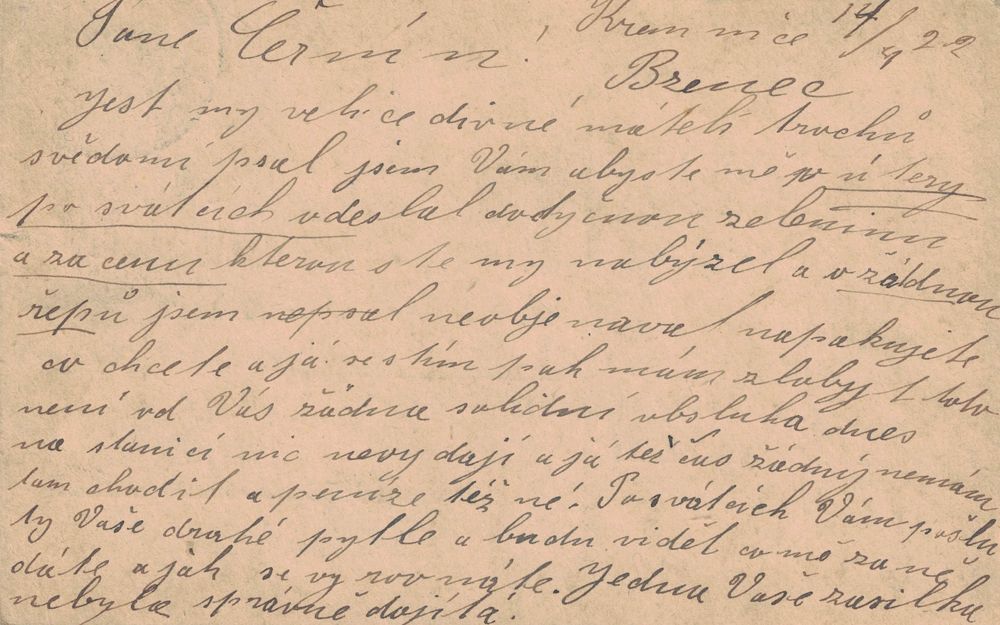 Pane Čermín! Kremniče 14/4 22
Bzenec
Jest my velice divné mátelí trochů
svědomí psal jsem Vám abyste mě v útery
po svátcích odeslal dotyčnou zeleninu
a za cenu kterou ste my nabýzel a o žádnou
řepů jsem nepsal neobjenaval napakujete
co chcete a já se stím pak mám zlobyt toto
není od Vás žádna solidní obsluha dnes
na stanicí nic nevydají a já též čas žádný nemám
tam chodit a peníze též né! Po svátcích Vám pošlu
ty Vaše drahé pytle a budu vidět co mě za ně
dáte a jak se vyrovnáte. Jedna Vaše zasilka
nebyla správně dojita!